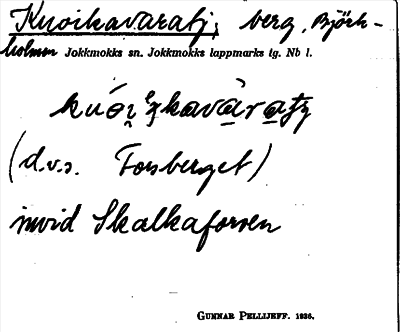 Kuoikavaratj, berg, Björk-
holmen Jokkmokks sn. Jokkmokks lappmarks tg. Nb l.
(d.v.s. Forsberget)
invid Skalkaforsen
GUNNAR PELLIJEFF. 1936.